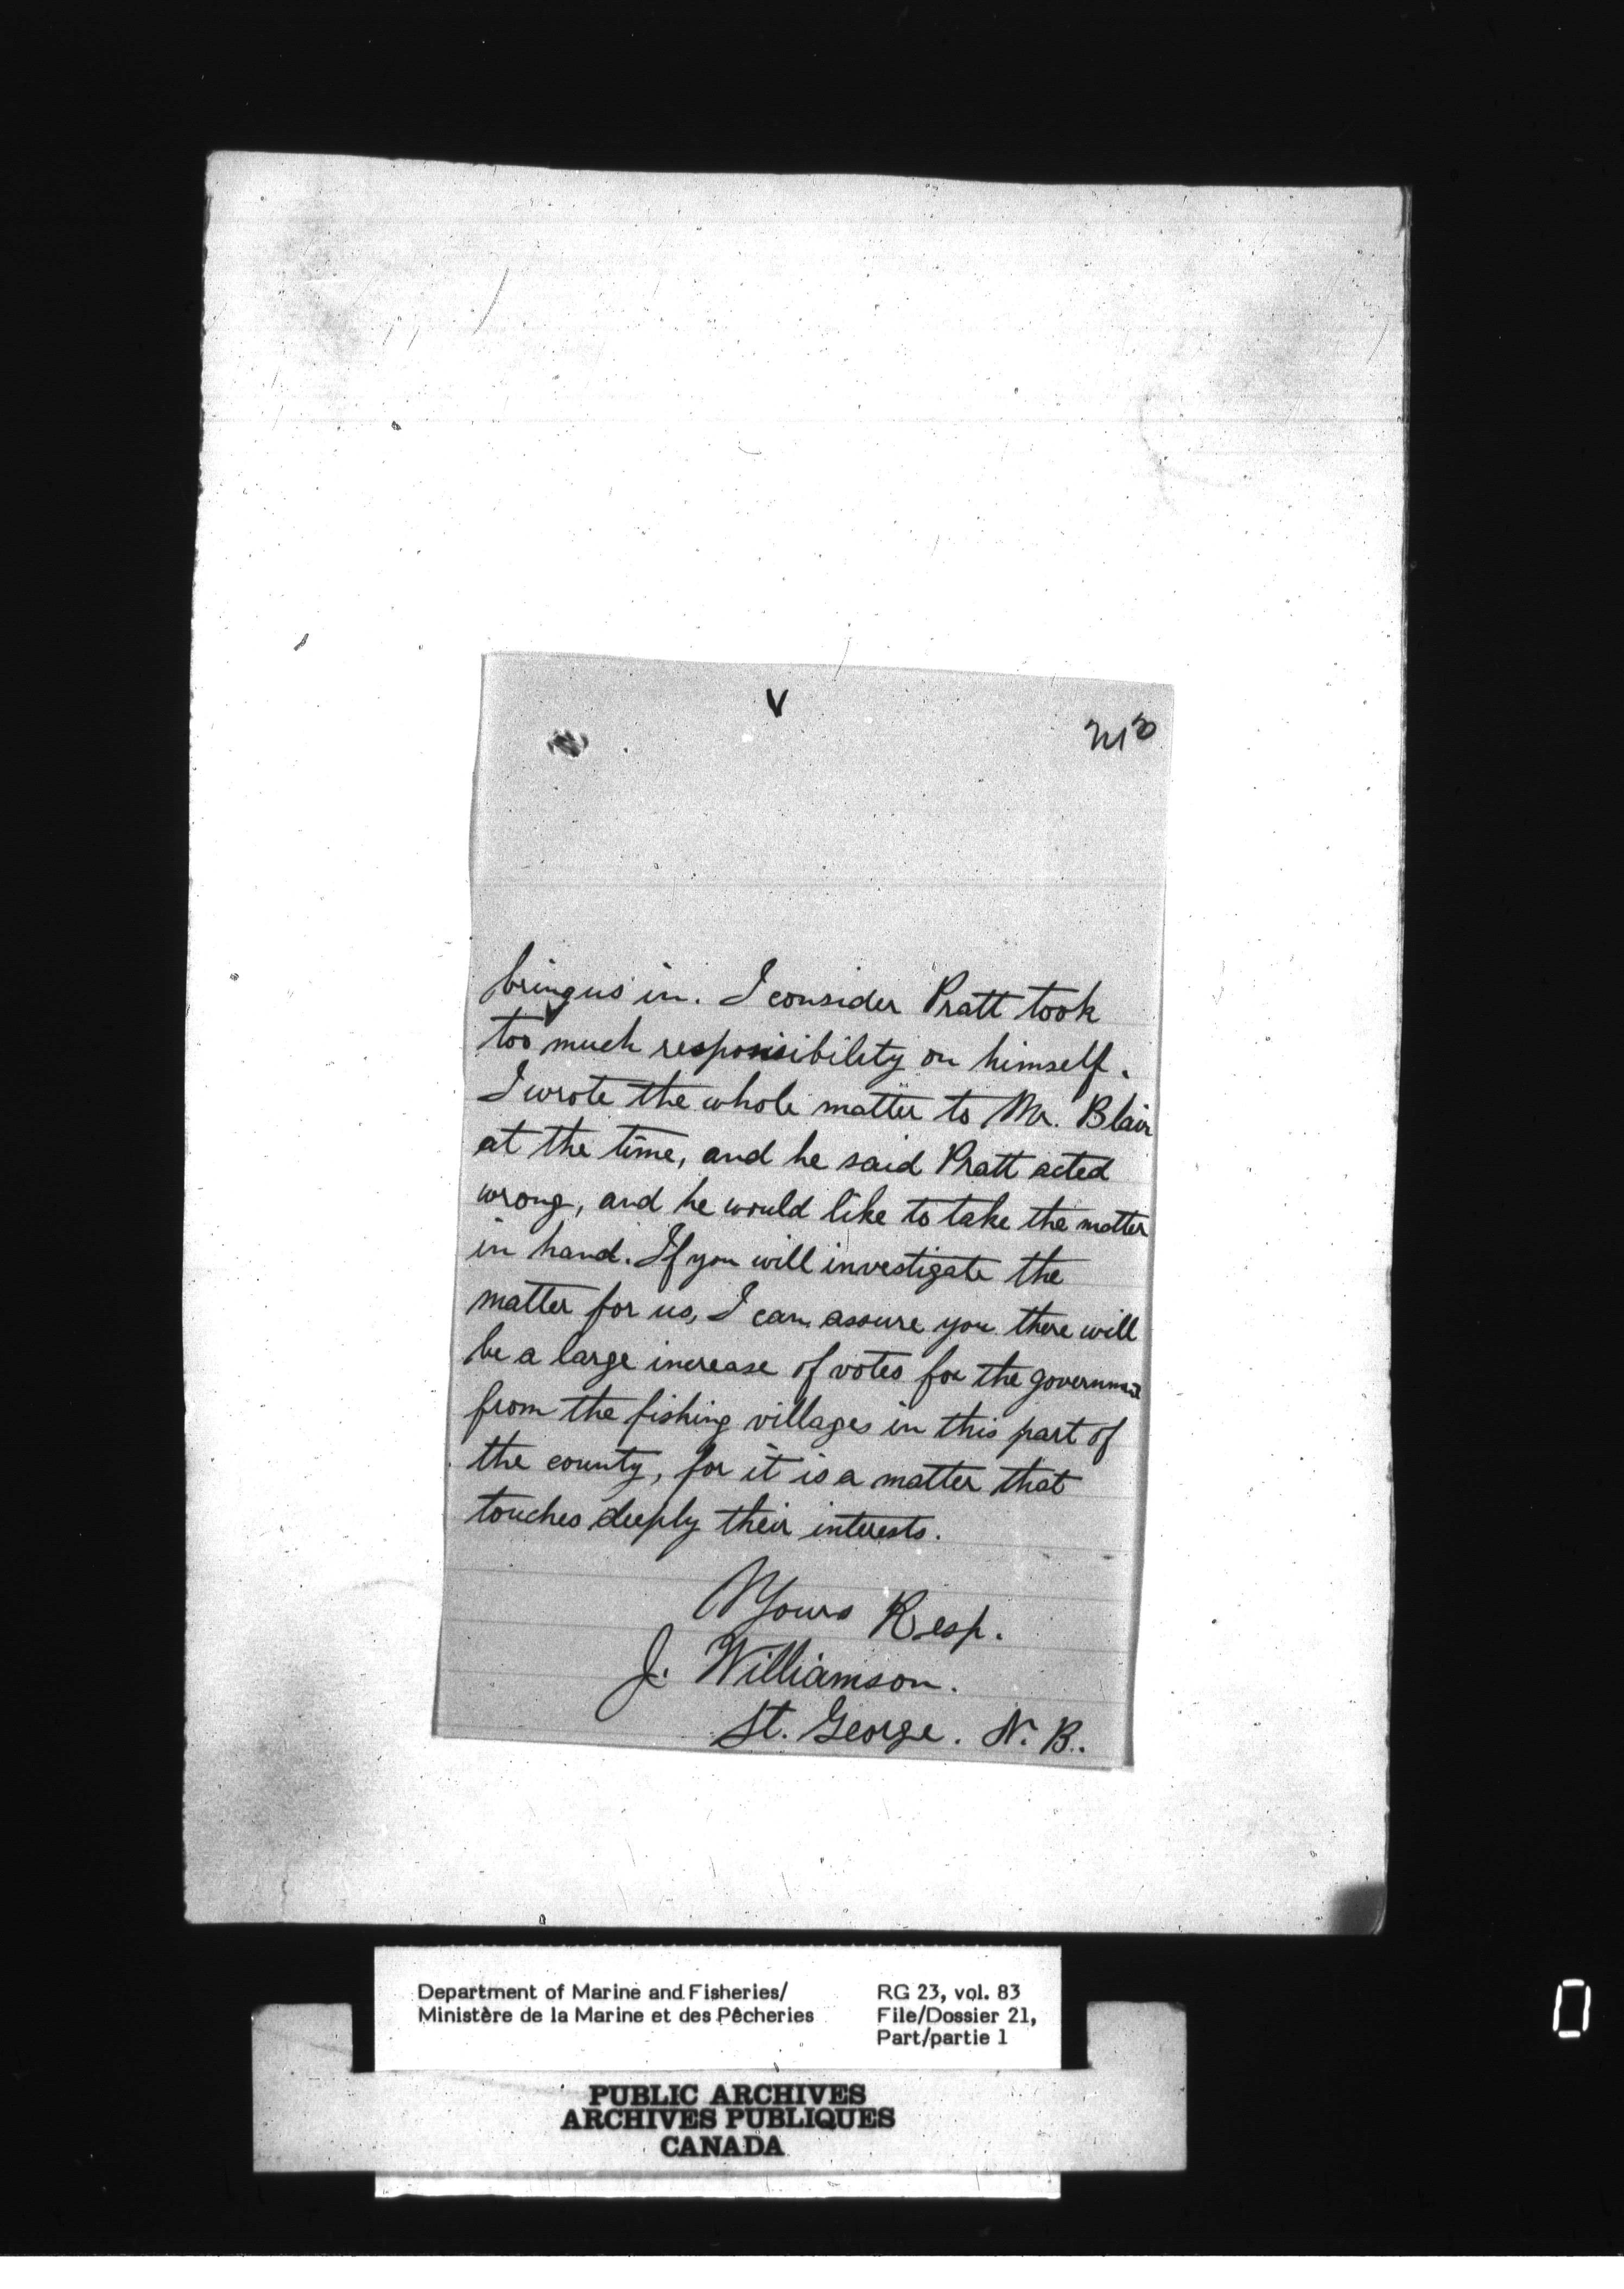 V
bring us in. I consider Pratt took
too much responsibility on himself.
I wrote the whole matter to Mr. Blair
at the time, and he said Pratt acted
wrong, and he would like to take the matter
in hand. If you will investigate the
matter for us, I can assure you there will
be a large increase of votes for the government
from the fishing villages in this part of
the county, for it is a matter that
touches deeply their interests.
Yours Resp.
J. Williamson.
St. George. N. B.
Department of Marine and Fisheries/
Ministère de la Marine et des Pêcheries
RG 23, vol. 83
File/Dossier 21,
Part/partie 1
PUBLIC ARCHIVES
ARCHIVES PUBLIQUES
CANADA